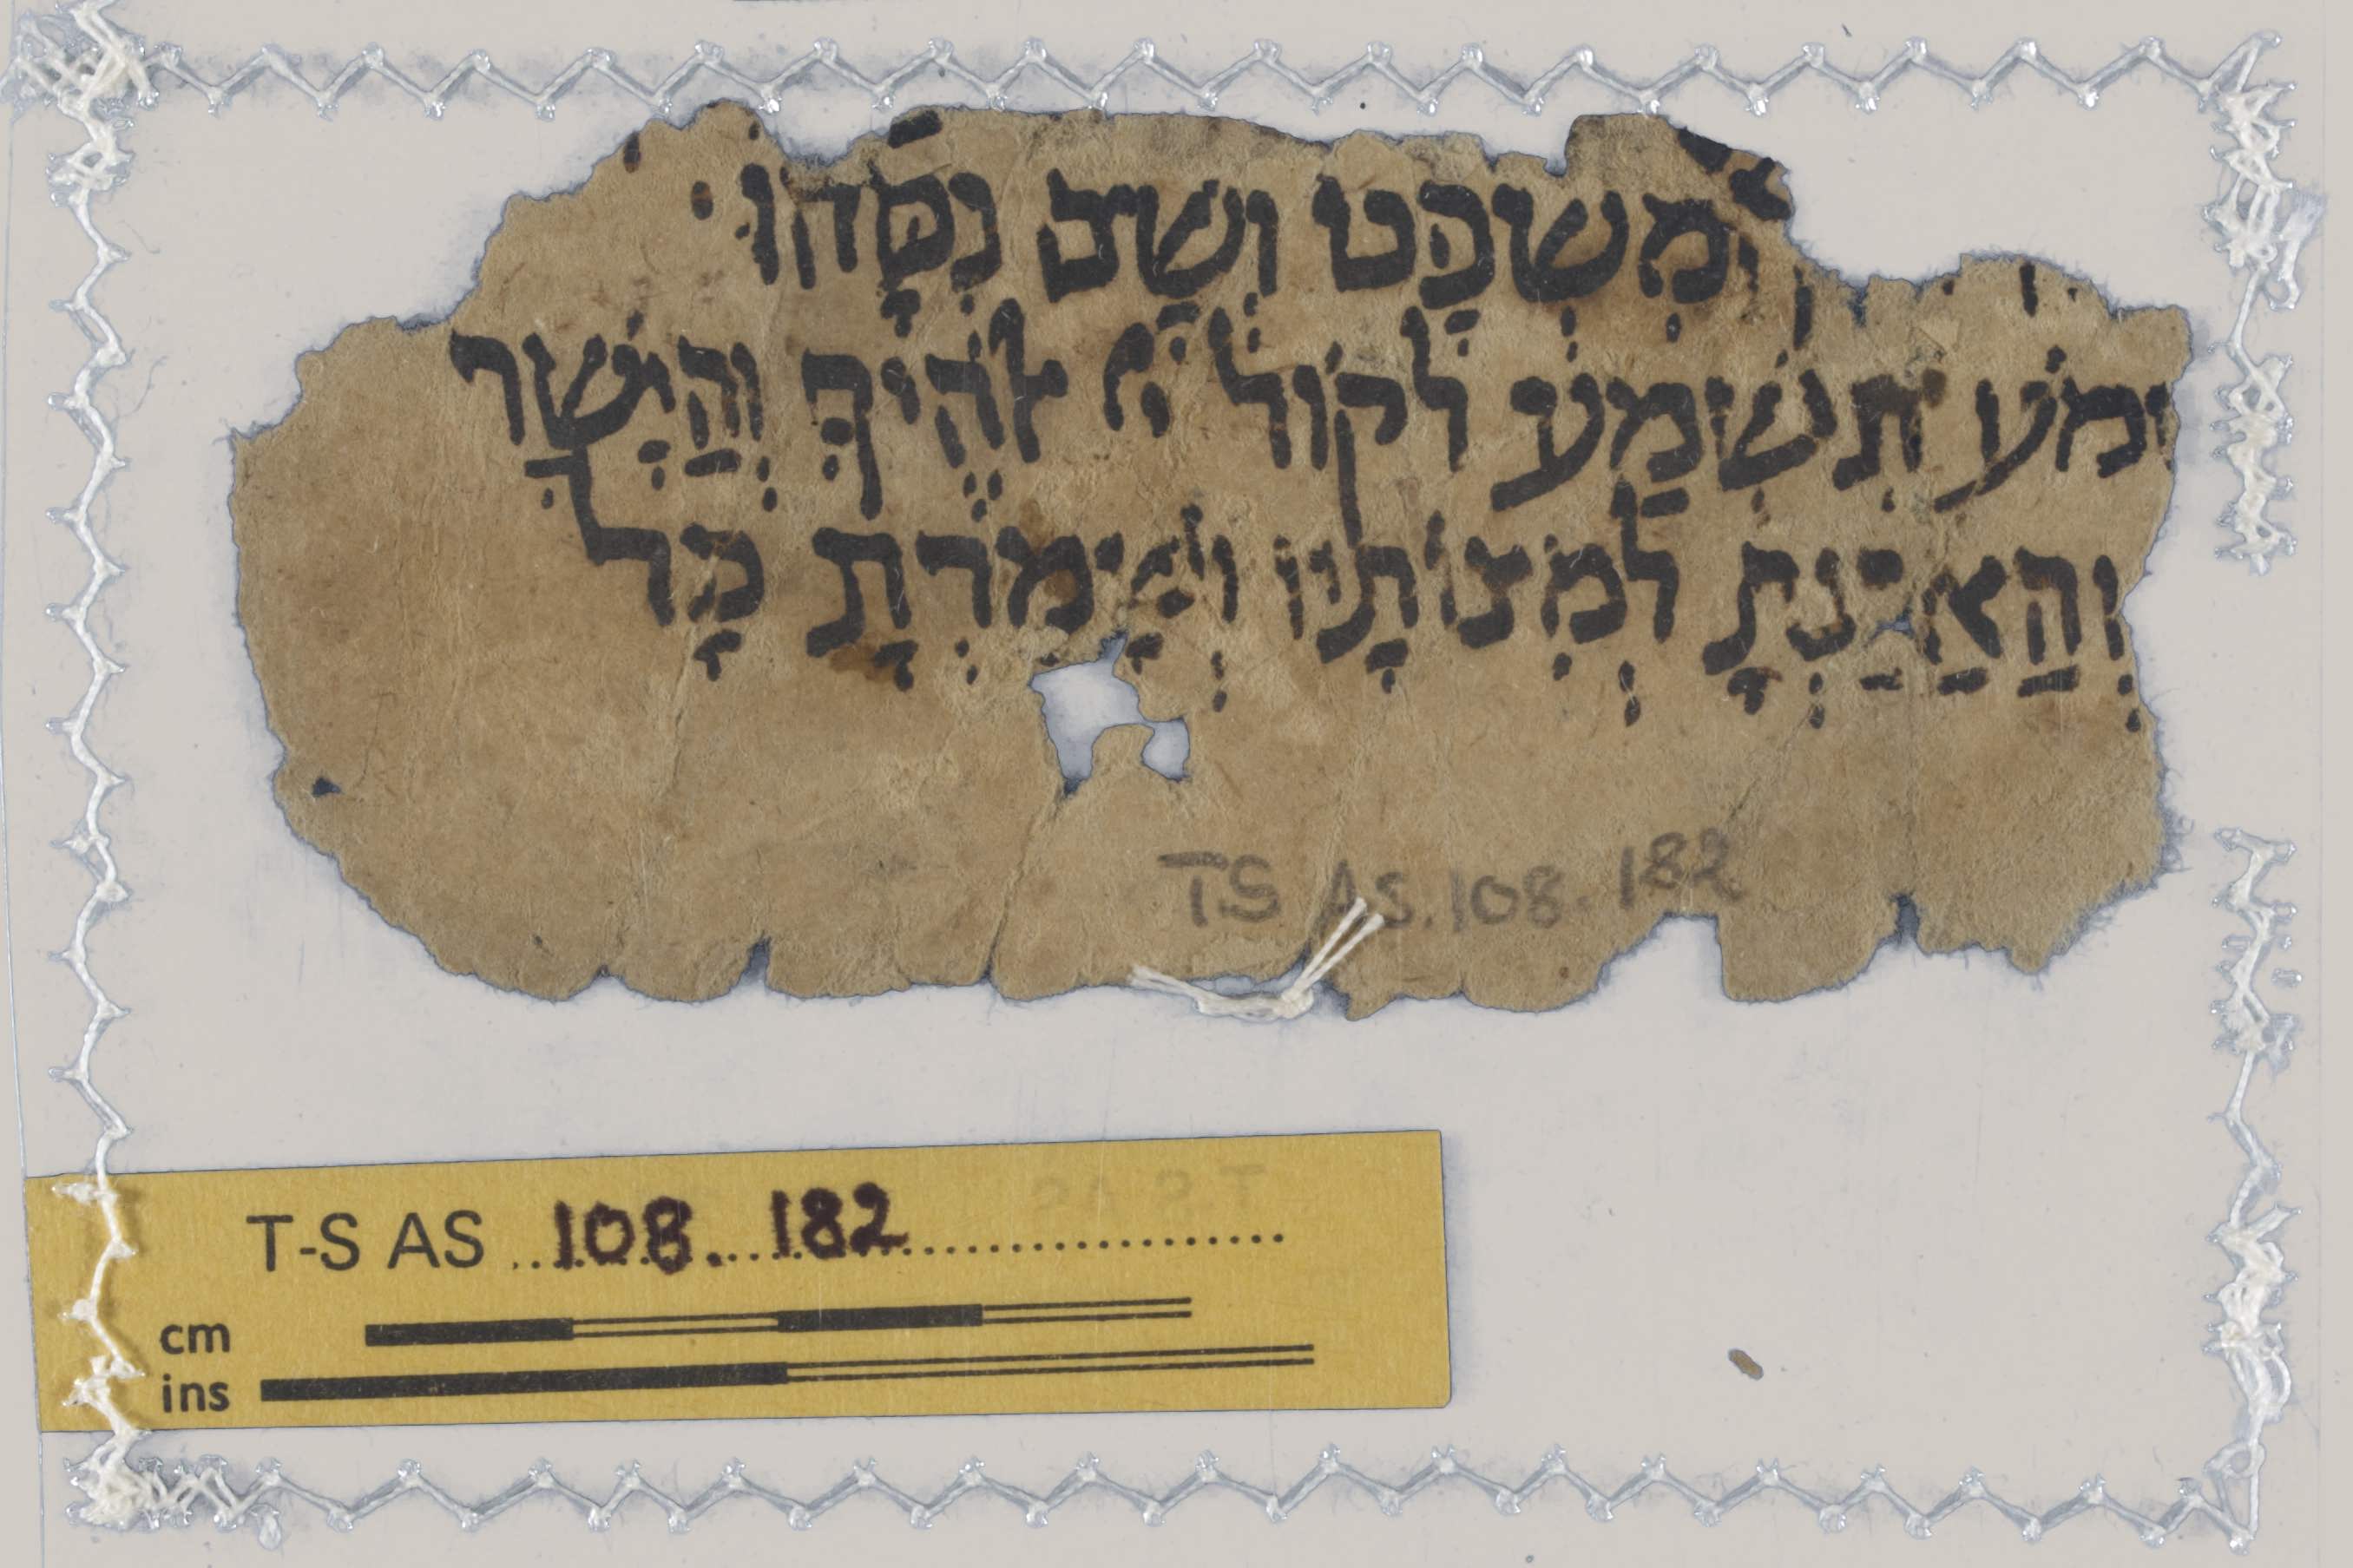 וּמִשְׁפָּט וְשָׁם נִסָּהוּ׃
שמֹע תִשְׁמַע לקוֹל יי אלֹהֶיךָ וְהַיָּשָׁר
וְהַאַזַנְתָּ לְמִצוֹתָיו וְשָׁמַרְתָּ כָּל
TS AS.108.182
T-S AS 108. 182
cm
ins